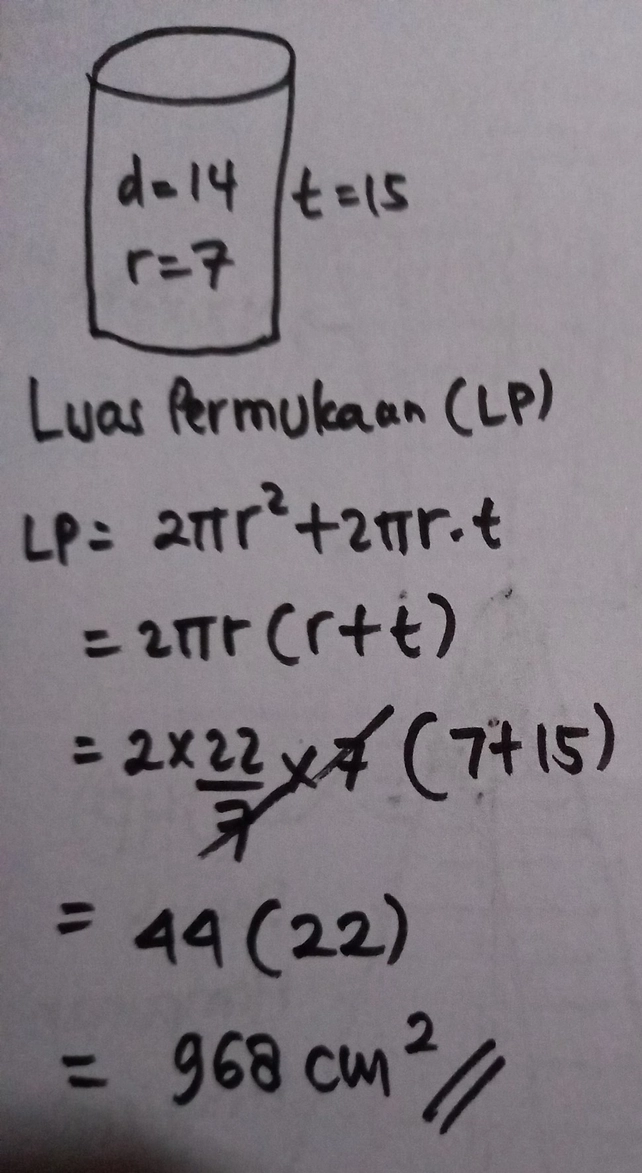 d=14
t=15
r=7
Luas Permukaan (LP)
LP= 2πr²+2πr.t
= 2πr (r+t)
= 2×22/7×7 (7+15)
= 44 (22)
= 968 cm²//